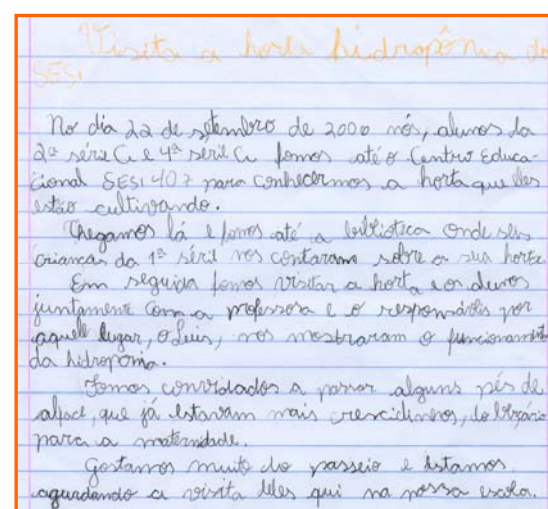 Visita a horta hidropônia do
SESI
No dia 22 de setembro de 2000 nós, alunos da
2ª série C e 4ª série C fomos até o Centro Educa-
cional SESI 407 para conhecermos a horta que eles
estão cultivando.
Chegamos lá e fomos até a biblioteca onde seis
crianças da 1ª série nos contaram sobre a sua horta.
Em seguida fomos visitar a horta e os alunos
juntamente com a professora e o responsável por
aquele lugar, o Luis, nos mostraram o funcionamento
da hidroponia.
Fomos convidados a passar alguns pés de
alface, que já estavam mais crescidinhos, do berçário
para a maternidade.
Gostamos muito do passeio e estamos
aguardando a visita deles qui na nossa escola.